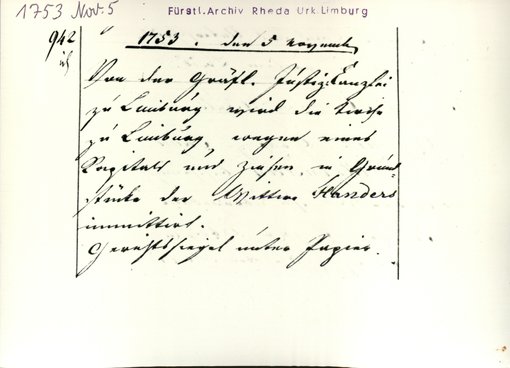 1753 Nov. 5
Fürstl. Archiv Rheda Urk. Limburg
942
1753. den 5 November
Von der Gräfl. Justiz-Canzlei
zu Limburg wird die Kirche
zu Limburg, wegen eines
Kapitals und Zinsen in Grund-
stücke der Wittwe Handers
immittirt.
Gerichtssiegel unter Papier.